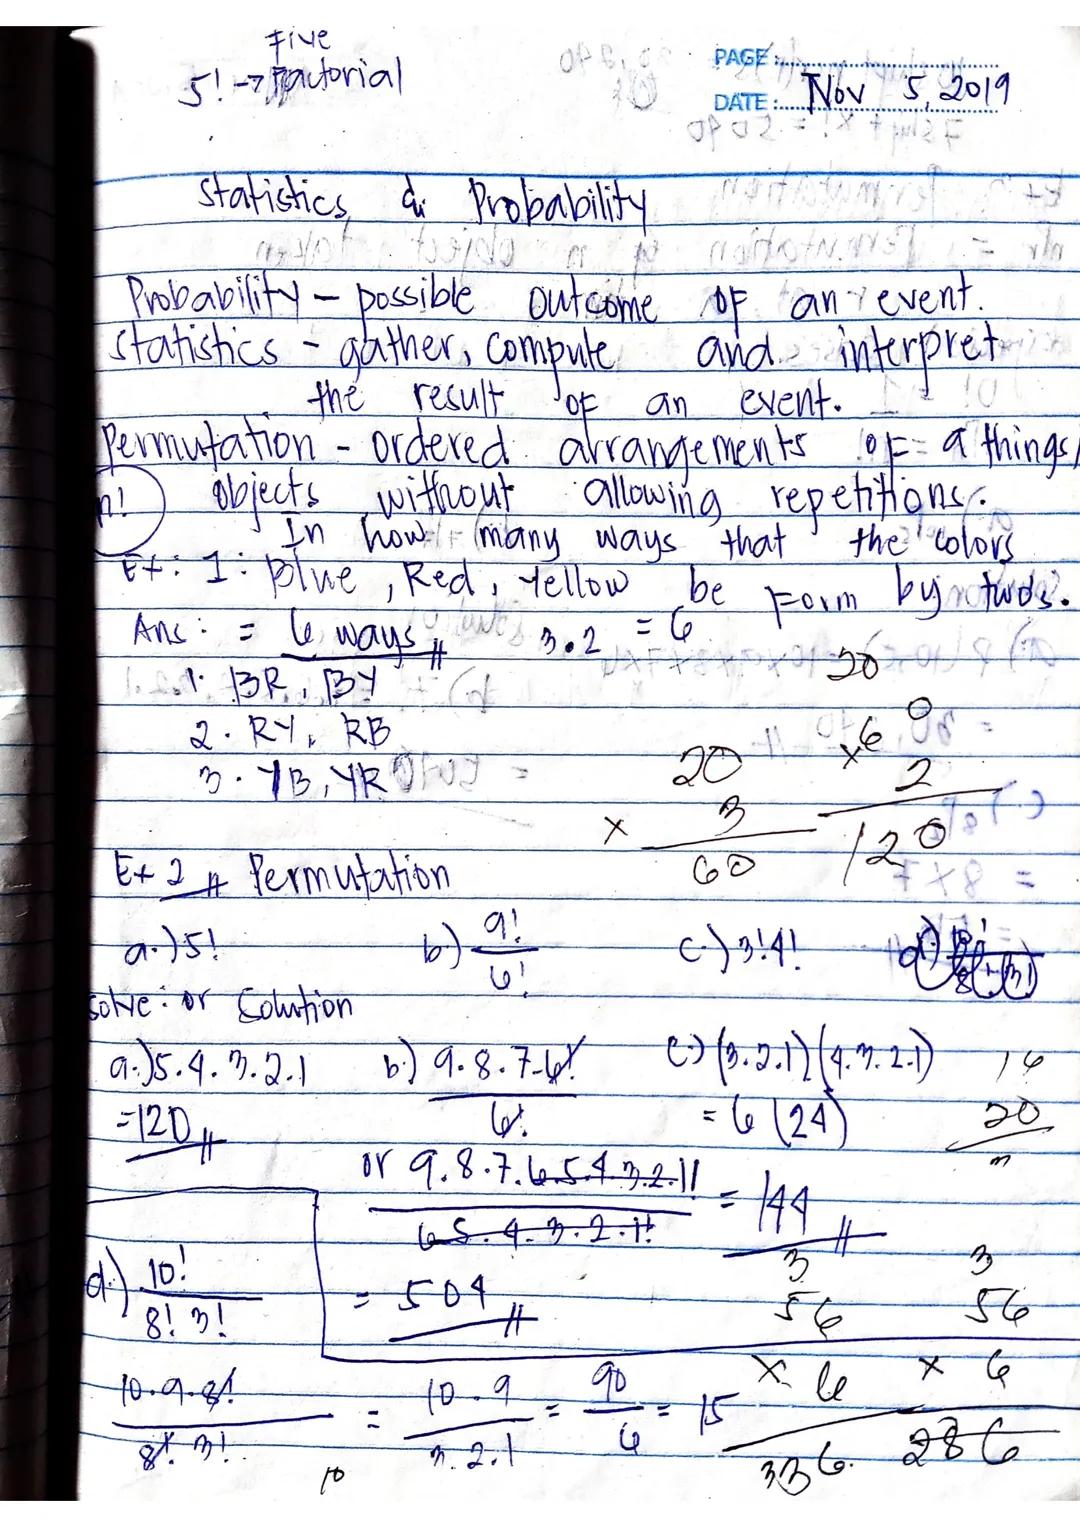 Five
5! -> Factorial
PAGE:
DATE: Nov 5, 2019
Statistics & Probability
Probability - possible outcome of an event.
Statistics - gather, compute and interpret
the result of an event.
Permutation - ordered arrangements of a things/
n! objects without allowing repetitions.
In how many ways that the colors
Ex: 1: Blue, Red, Yellow be Form by twos.
Ans: = 6 ways 3.2 = 6
1. BR, BY
2. RY, RB
3. YB, YR
20
x 3
60
20
x6
2
120
Ex 2 Permutation
a.) 5! b.) 9!/6! c.) 3!4!
Solve: or Solution
a.) 5.4.3.2.1 b.) 9.8.7.6!/6! c.) (3.2.1)(4.3.2.1)
=120 = 6 (24)
or 9.8.7.6.5.4.3.2.1!/6.5.4.3.2.1! = 144
= 504
d.) 10!/8! 3!
10.9.8!/8! 3! = 10.9/3.2.1 = 90/6 = 15
3
56
x 6
336.
3
56
x 6
286
10